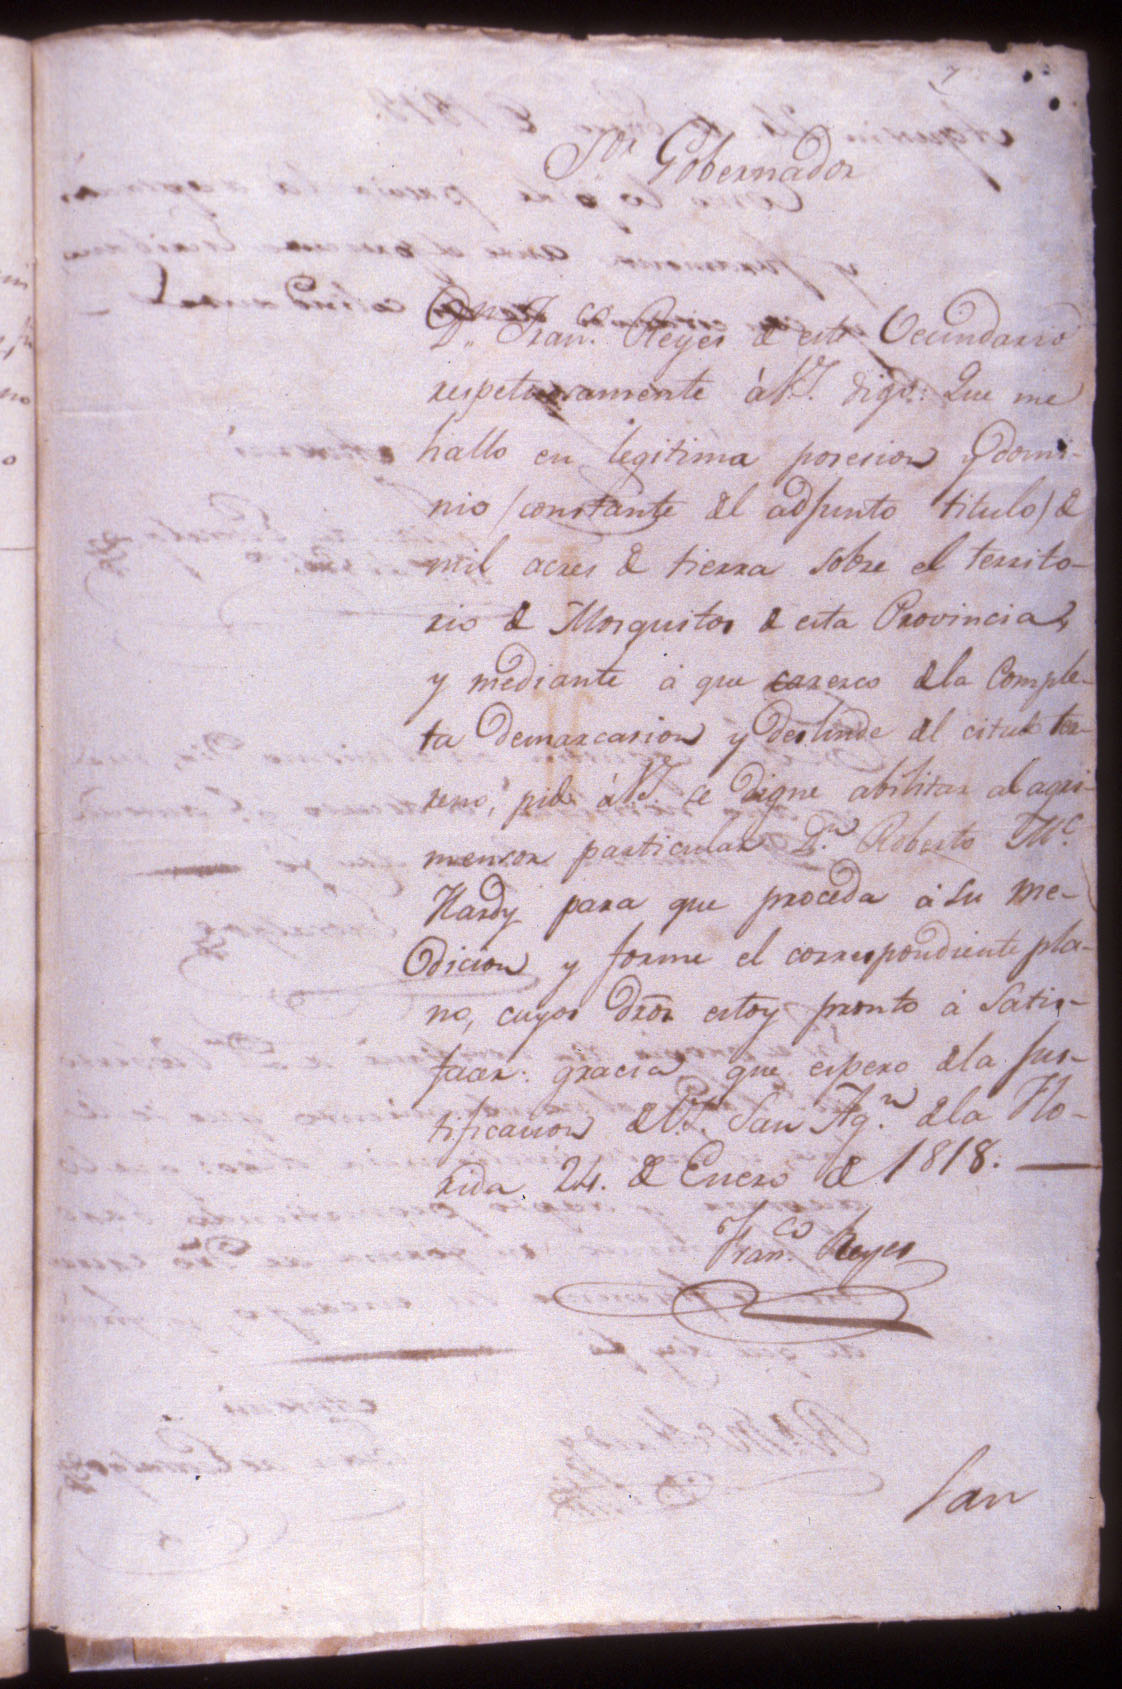 7
Sor Gobernador
Dn. Franco. Reyes de este Vecindario
respetuosamente à V.S. digo: Que me
hallo en legitima posesion y domi-
nio (constante del adjunto titulo) de
mil acres de tierra sobre el territo-
rio de Mosquitos de esta Provincia,
y mediante á que carezco de la Comple-
ta demarcasion y deslinde del citado ter-
reno, pido à V.S. se digne abilitar al agri-
mensor particular Dn. Roberto Mc.
Hardy para que proceda á su me-
dicion y forme el correspondiente pla-
no, cuyos dros. estoy pronto á satis-
facer: gracia que espero de la jus-
tificacion de V.S. San Agn. de la Flo-
rida 24. de Enero de 1818.
Franco. Reyes
San